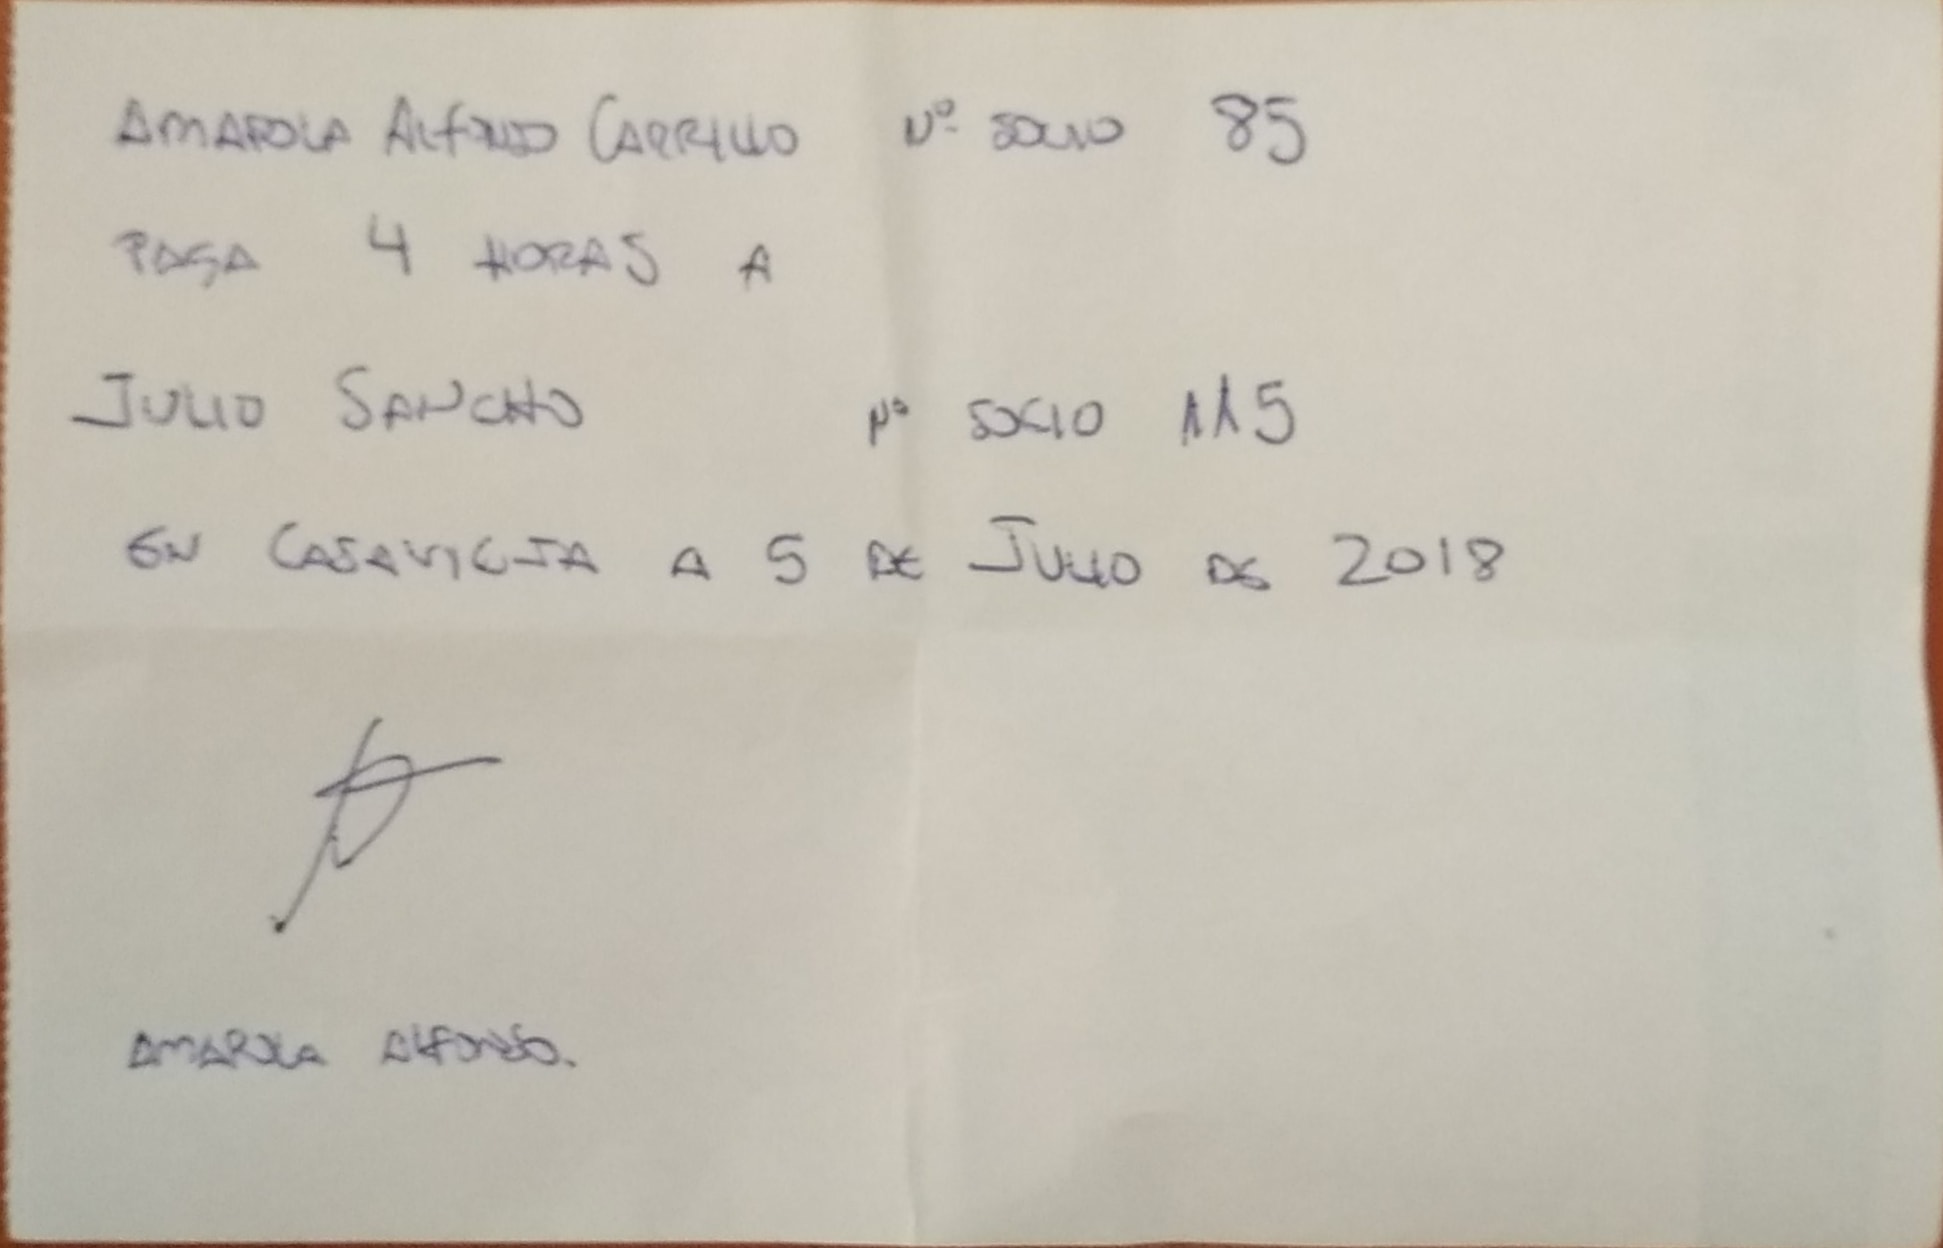 AMAROLA ALFONSO CARRILLO Nº SOCIO 85
PAGA 4 HORAS A
JULIO SANCHO Nº SOCIO 115
EN CASAVIEJA A 5 DE JULIO DE 2018
AMAROLA ALFONSO.